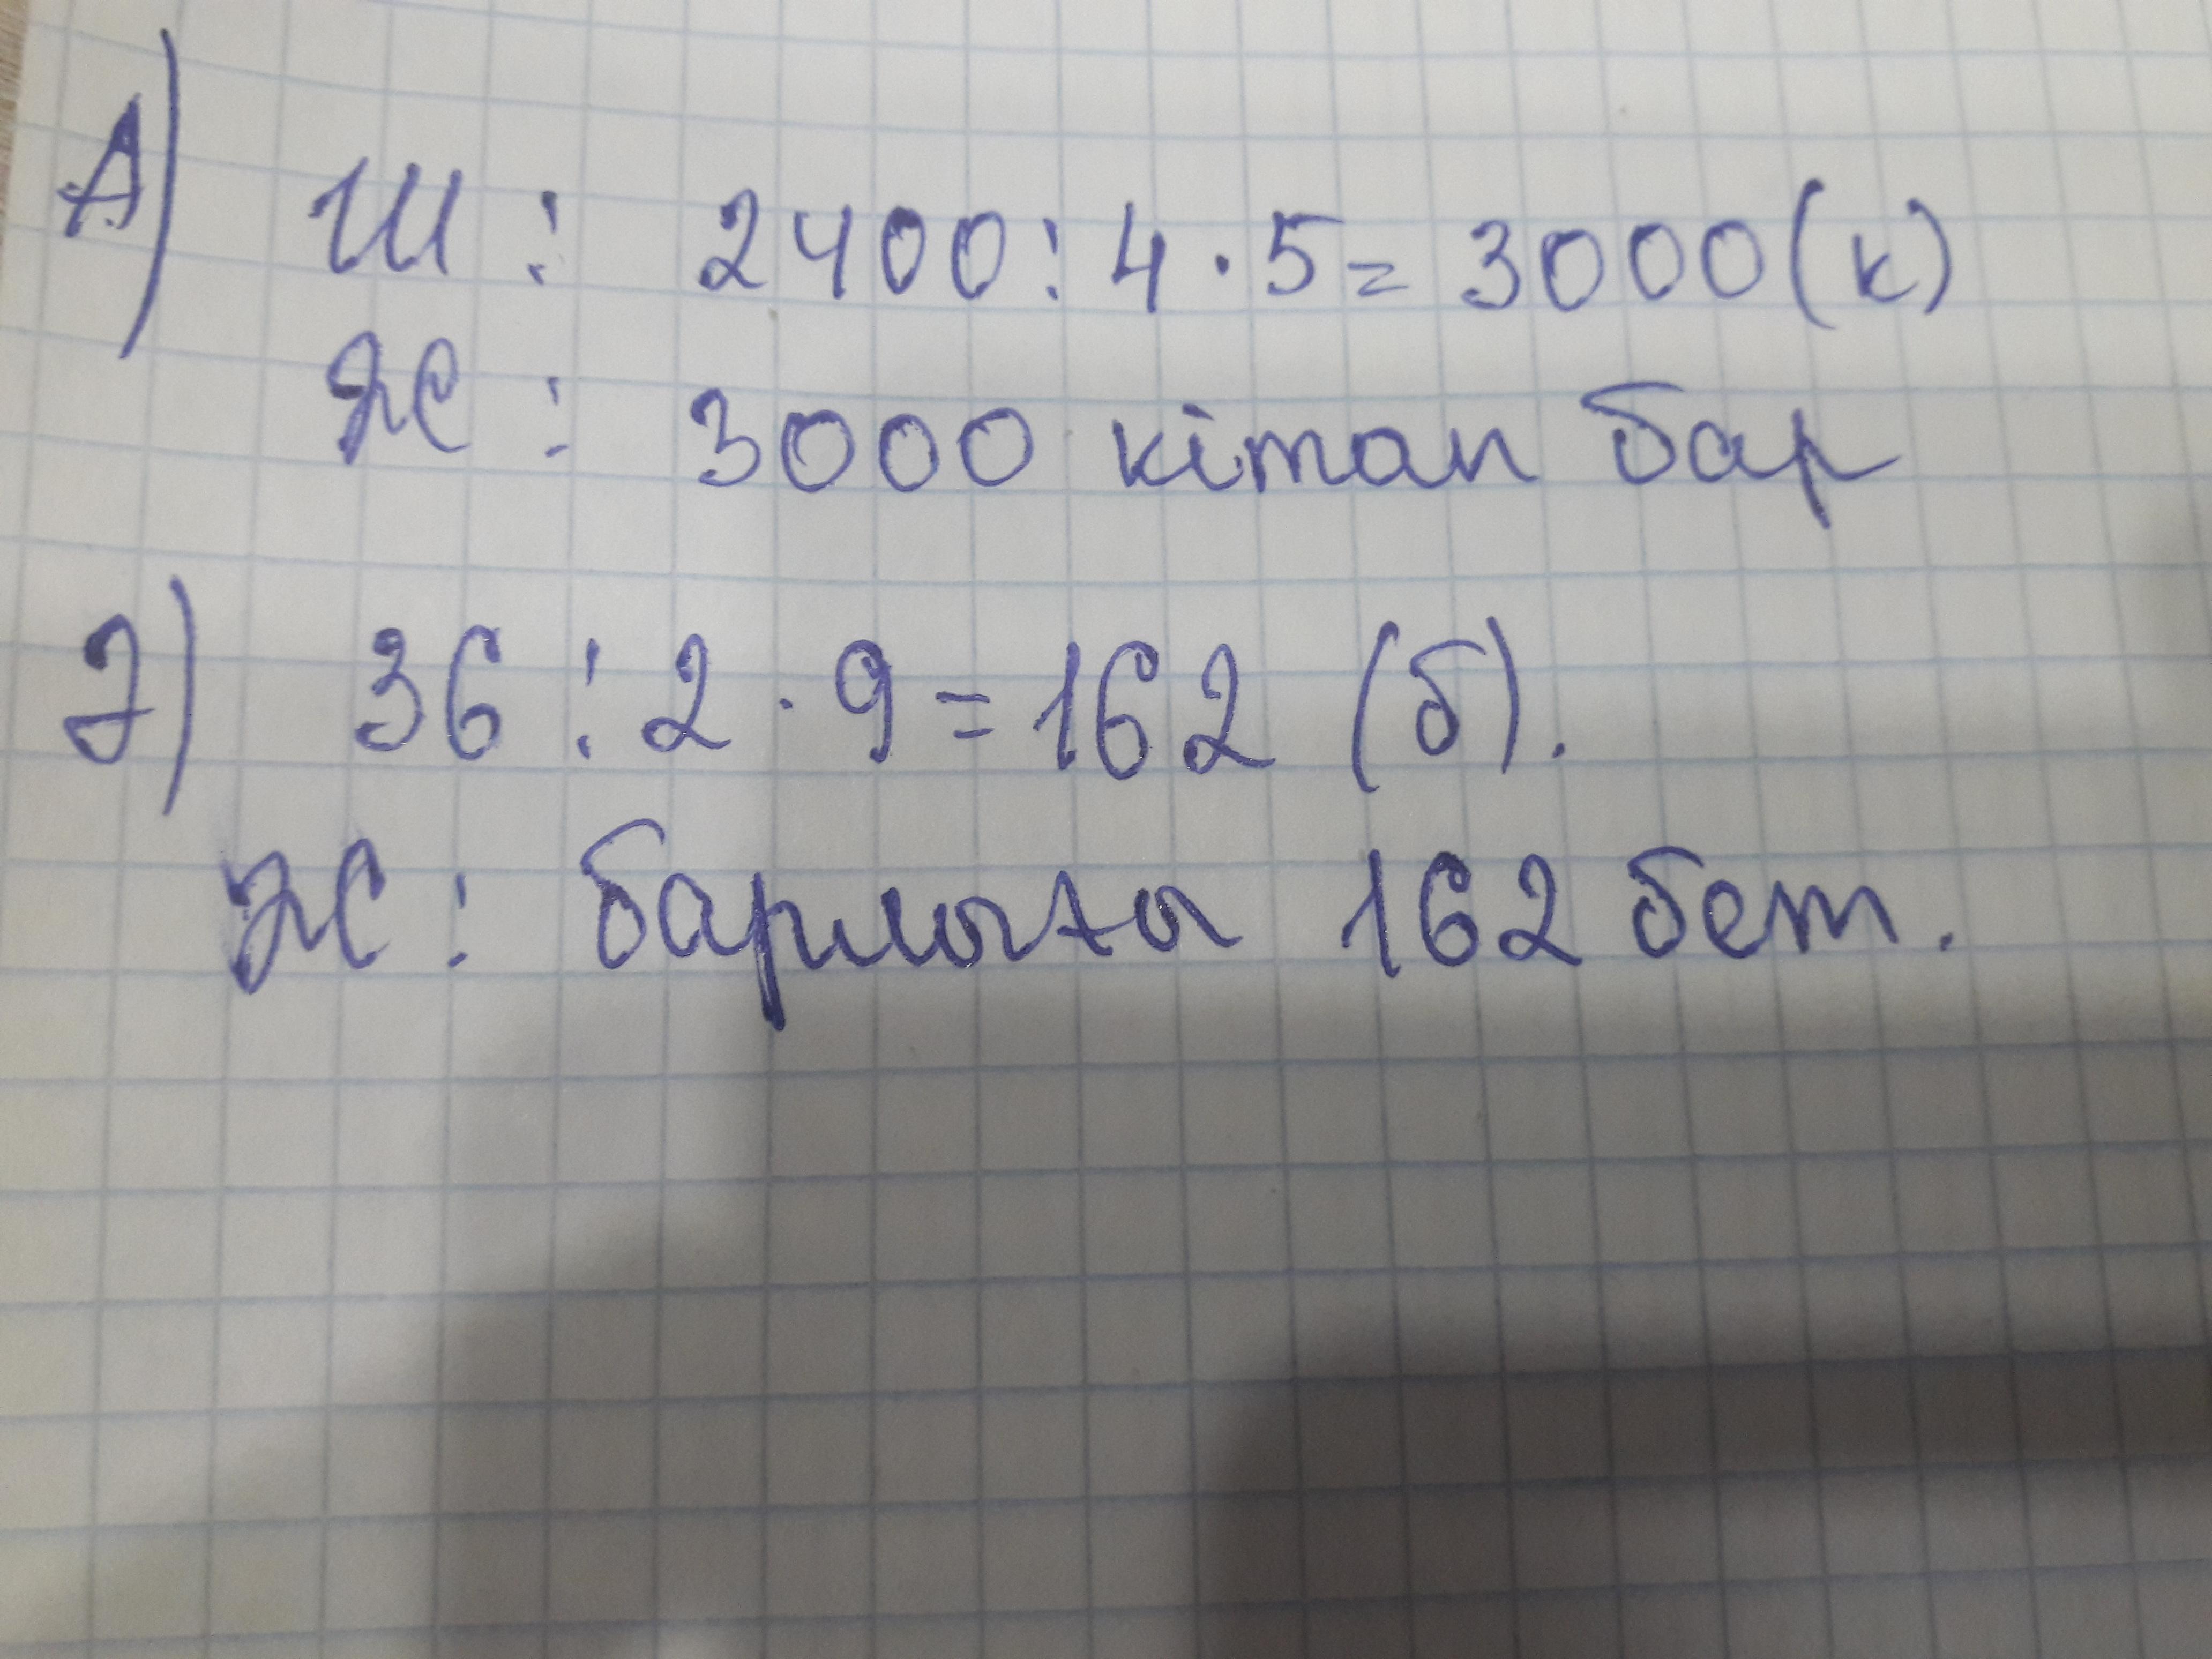 А) Ш: 2400:4·5=3000(к)
Ж: 3000 кітап бар
Ә) 36:2·9=162 (б).
Ж: барлығы 162 бет.